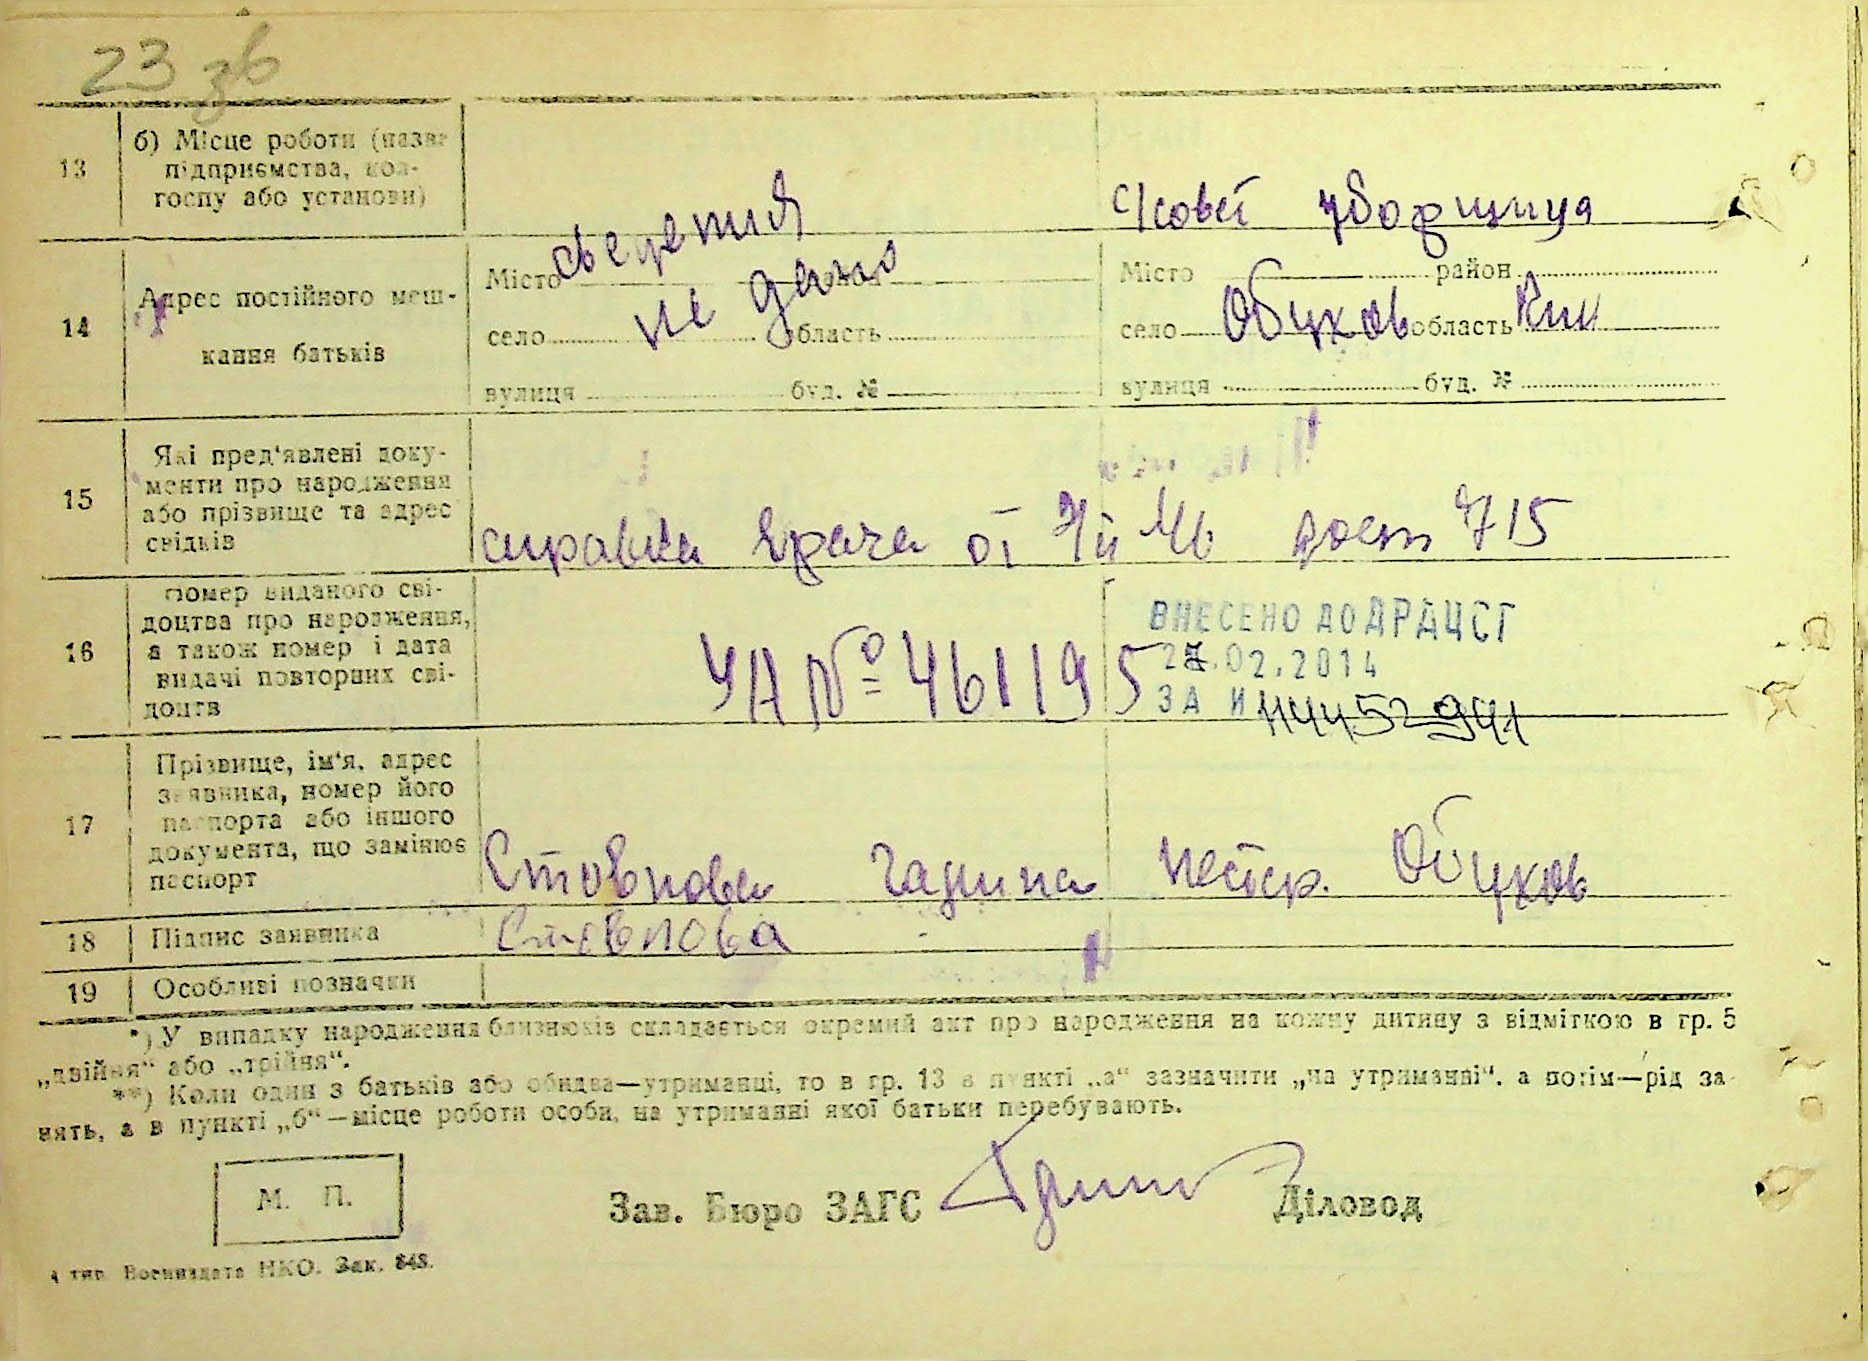 23 зв
13 б) Місце роботи (назва
підприємства, кол-
госпу або установи)
уборщица
14 Адрес постійного меш-
кання батьків
Місто сведения область
село не дано
вулиця буд. №
Місто район
село Обухов область Киї
вулиця буд. №
15 Які пред'явлені доку-
менти про народження
або прізвище та адрес
свідків
справка врача от 715
16 Номер виданого сві-
доцтва про народження,
а також номер і дата
видачі повторних сві-
доцтв
УА № 461195
ВНЕСЕНО ДО ДРАЦСГ
27.02.2014
ЗА И 114452941
17 Прізвище, ім'я, адрес
заявника, номер його
паспорта або іншого
документа, що замінює
паспорт
Стовпова Галина Нестер. Обухов
18 Підпис заявника Стовпова
19 Особливі позначки
*) У випадку народження близнюків складається окремий акт про народження на кожну дитину з відміткою в гр. 5
„двійня“ або „трійня“.
**) Коли один з батьків або обидва—утриманці, то в гр. 13 в пункті „а“ зазначити „на утриманні“, а потім—рід за-
нять, а в пункті „б“—місце роботи особи, на утриманні якої батьки перебувають.
М. П.
Зав. Бюро ЗАГС Діловод
4 тип. Воениздата НКО. Зак. 848.